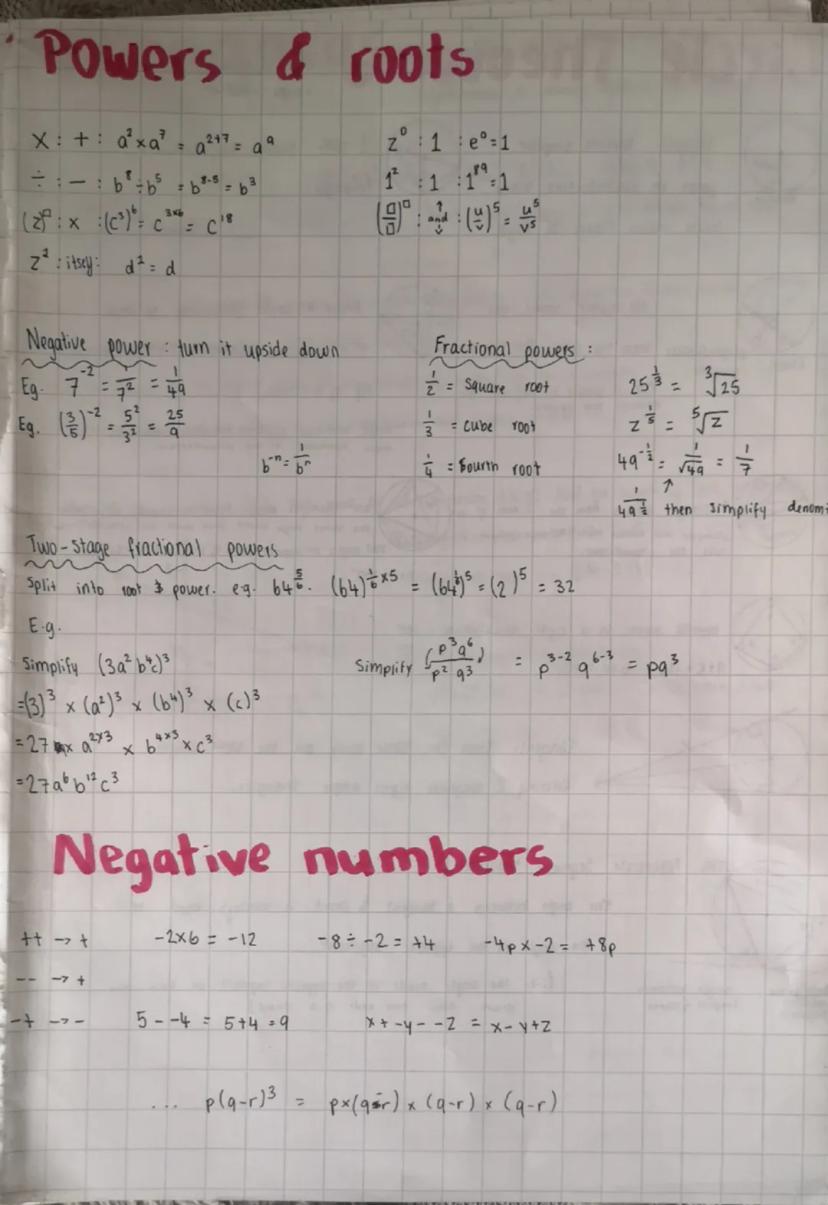 Powers & roots
× : + : a² × a⁷ = a²⁺⁷ = a⁹
z⁰ : 1 : e⁰ = 1
÷ : − : b⁸ ÷ b⁵ = b⁸⁻⁵ = b³
1² : 1 : 1⁸⁹ = 1
(z)^□ : × : (c³)⁶ = c^(3×6) = c¹⁸
(□/□)^□ : ↑ and ↓ : (u/v)⁵ = u⁵/v⁵
z¹ : itself : d¹ = d
Negative power : turn it upside down
Eg. 7⁻² = 1/7² = 1/49
Eg. (3/5)⁻² = 5²/3² = 25/9
b⁻ⁿ = 1/bⁿ
Fractional powers :
1/2 = Square root
25^(1/3) = ³√25
1/3 = cube root
z^(1/5) = ⁵√z
1/4 = fourth root
49^(-1/2) = 1/√49 = 1/7
↑
1/49^(1/2) then simplify denomi
Two-stage fractional powers
Split into root & power. e.g. 64^(5/6). (64)^(1/6 × 5) = (64^(1/6))⁵ = (2)⁵ = 32
E.g.
Simplify (3a²b⁴c)³
=(3)³ × (a²)³ × (b⁴)³ × (c)³
=27 × a^(2×3) × b^(4×3) × c³
=27a⁶b¹²c³
Simplify (p³q⁶/p²q³) = p³⁻² q⁶⁻³ = pq³
Negative numbers
++ → +
-2×6 = -12
-8 ÷ -2 = +4
-4p × -2 = +8p
-- → +
-+ → -
5 - -4 = 5+4 = 9
x + -y - -z = x - y + z
... p(q-r)³ = p×(q-r) × (q-r) × (q-r)